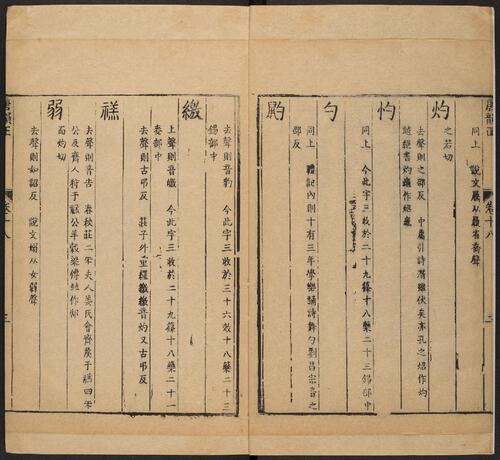 同上 説文屩从履省喬聲
灼
之若切
去聲則之邵反 中庸引詩潛雖伏矣亦孔之昭作灼
書灼爍作
灼
同上 今此字三收於二十九篠十八藥二十三錫部中
勺
同上 禮記內則十有三年學樂誦詩舞勺劉昌宗音之
邵反
肑
去聲則音豹 今此字三收於三十六效十八藥二十三
錫部中
繳
上聲則音皦 今此字三收於二十九篠十八藥二十一
麥部中
去聲則古弔反 莊子外繳音灼又古弔反
禚
去聲則音告 春秋莊二年夫人姜氏會齊侯于禚四年
公及齊人狩于禚公羊穀梁傳並作郜
弱
而灼切
去聲則如詔反 説文嫋从女弱聲
唐韻正
卷十八
三